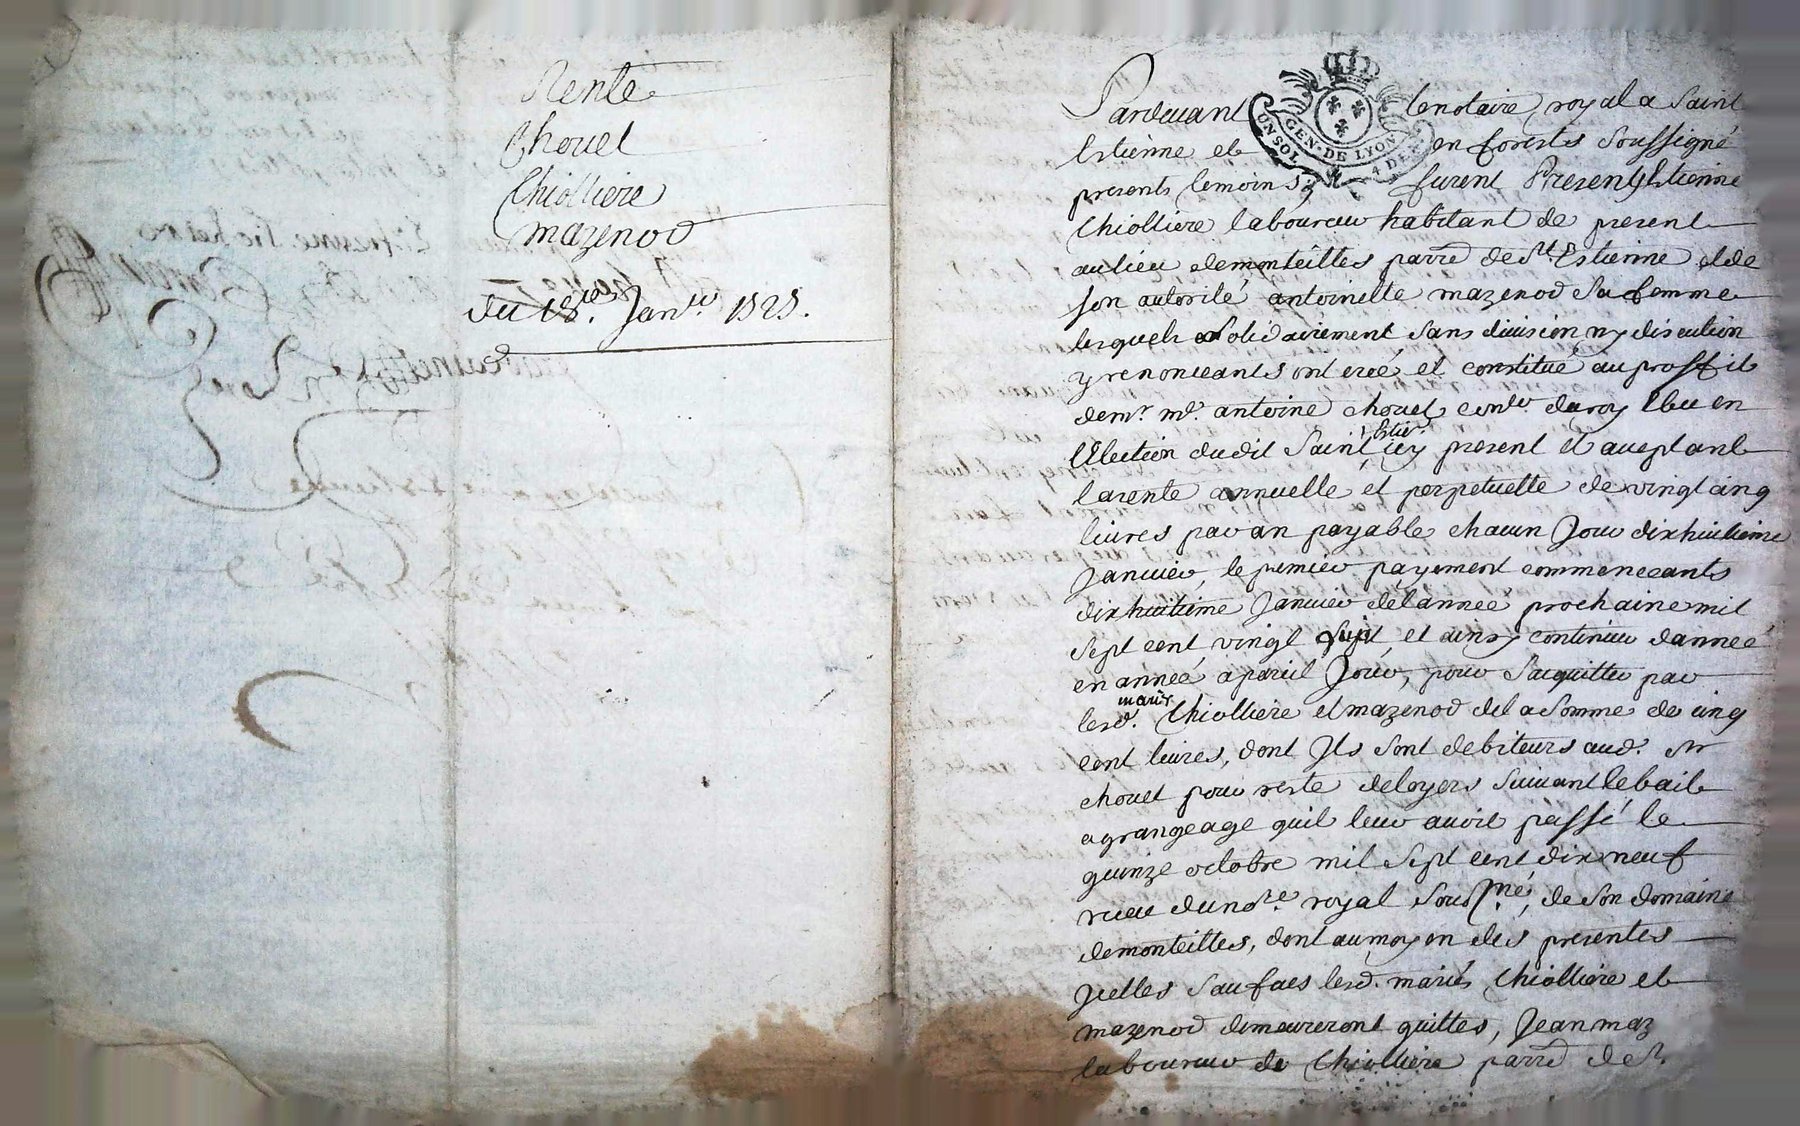 Rente
Chovet
Chiolliere
mazenod
du 18.
Janer
Pardevant le notaire royal a Saint
Estienne et en forests Soussigné
presents temoins, furent Presents Estienne
Chiolliere laboureur habitant de present
au lieu demonteilles parre de St. Estienne et de
son autorité antoinette mazenod Sa femme
lesquels solidairement sans division ny discution
y renonceants ont creé et constitué au proffit
de mr. me. antoine chovet conser. du roy Eleu en
l'Election dudit Saint Estier. icy present et aceptant
la rente annuelle et perpetuelle de vingt cinq
livres par an payable chacun Jour dixhuitieme
Janvier, le premier payement commenceants
dixhuitieme Janvier de l'année prochaine mil
Sept cent vingt Sept, et ainsy continuer d'année
en année a pareil Jour, pour S'acquitter par
lesd. mariés Chiolliere et mazenod de la Somme de cinq
cent livres, dont Ils Sont debiteurs aud. Sr
chovet pour reste de loyers Suivant le bail
a grangeage quil leur avoit passé le
quinze octobre mil Sept cent dix neuf
receu du nore royal Sousné, de Son domaine
demonteilles, dont au moyen des presentes
Icelles Saufaes lesd. mariés Chiolliere et
mazenod demeureront quittes, Jean maz
laboureur de Chiolliere parre de St.
GEN. DE LYON
UN SOL 4 DEN